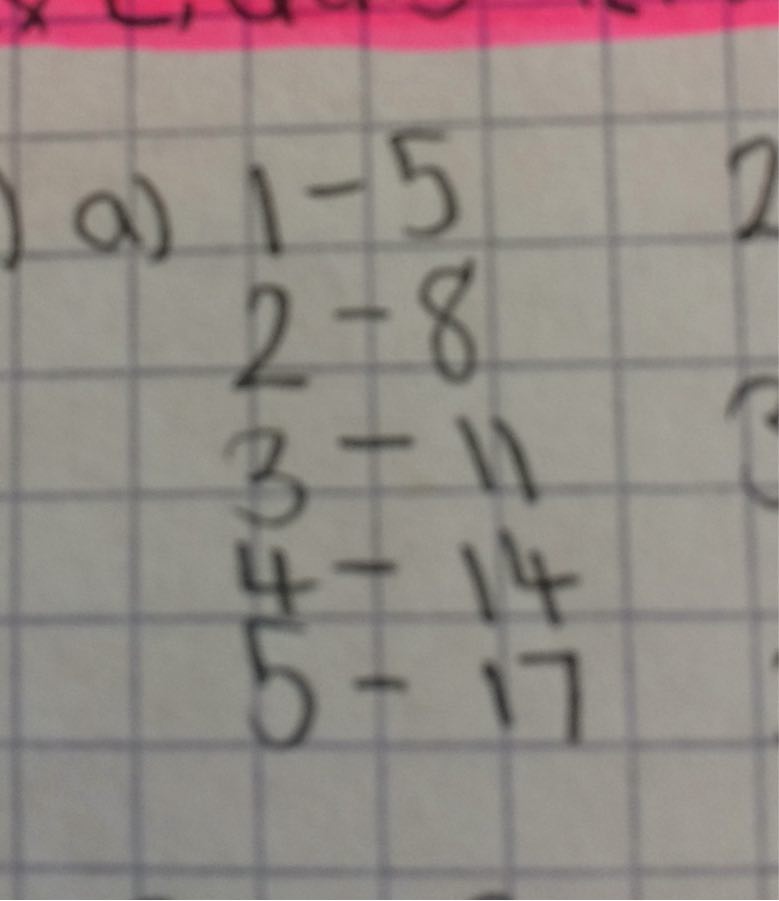 a) 1 - 5
2 - 8
3 - 11
4 - 14
5 - 17